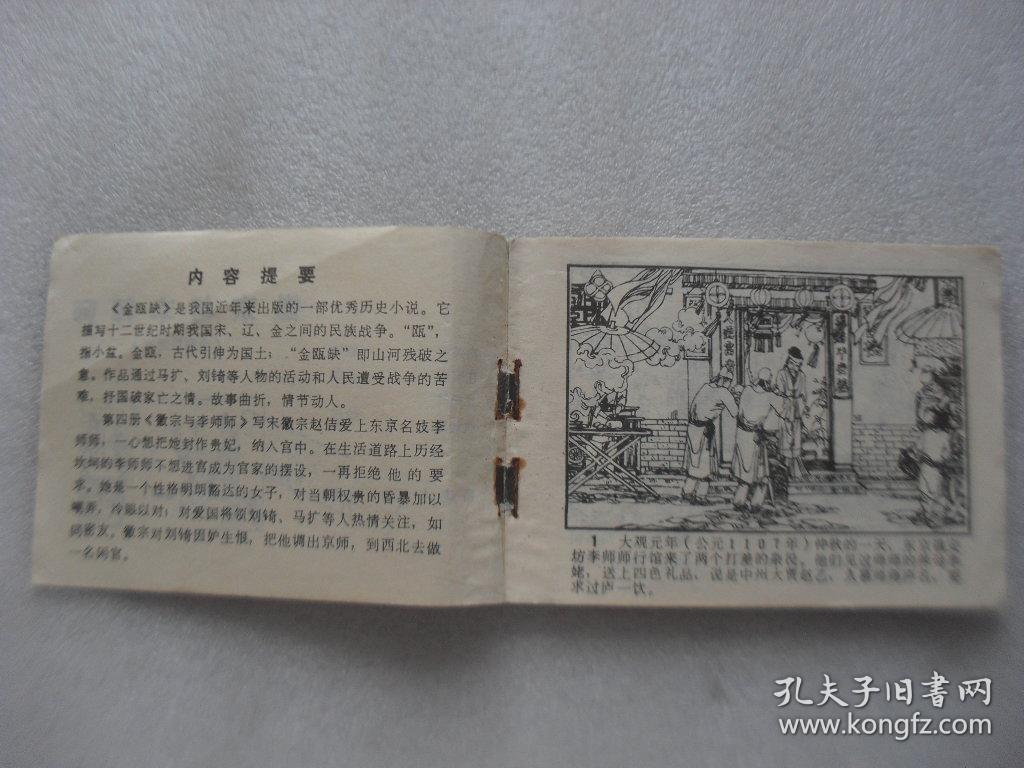 内容提要
《金瓯缺》是我国近年来出版的一部优秀历史小说。它
描写十二世纪时期我国宋、辽、金之间的民族战争。“瓯”，
指小盆。金瓯，古代引伸为国土；“金瓯缺”即山河残破之
意。作品通过马扩、刘锜等人物的活动和人民遭受战争的苦
难，抒国破家亡之情。故事曲折，情节动人。
第四册《徽宗与李师师》写宋徽宗赵佶爱上东京名妓李
师师，一心想把她封作贵妃，纳入宫中。在生活道路上历经
坎坷的李师师不想进宫成为官家的摆设，一再拒绝他的要
求。她是一个性格明朗豁达的女子，对当朝权贵的昏暴加以
嘲弄，冷眼以对；对爱国将领刘锜、马扩等人热情关注，如
同密友。徽宗对刘锜因妒生恨，把他调出京师，到西北去做
一名闲官。
1 大观元年（公元1107年）仲秋的一天，东京镇安
坊李师师行馆来了两个打差的杂役。他们见过师师的李
姥，送上四色礼品，说是中州大贾赵乙，久慕师师声名，要
求过庐一饮。
孔夫子旧书网
www.kongfz.com